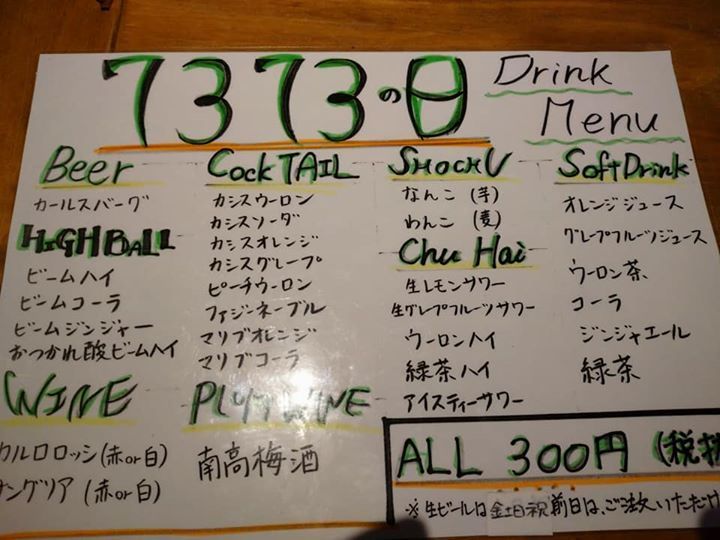 7373の日
Drink
Menu
Beer
カールスバーグ
HIGHBALL
ビームハイ
ビームコーラ
ビームジンジャー
おつかれ酸ビームハイ
COCKTAIL
カシスウーロン
カシスソーダ
カシスオレンジ
カシスグレープ
ピーチウーロン
ファジーネーブル
マリブオレンジ
マリブコーラ
SHOCHU
なんこ (芋)
わんこ (麦)
Chu Hai
生レモンサワー
生グレープフルーツサワー
ウーロンハイ
緑茶ハイ
アイスティーサワー
Soft Drink
オレンジジュース
グレープフルーツジュース
ウーロン茶
コーラ
ジンジャエール
緑茶
WINE
カルロロッシ (赤or白)
サングリア (赤or白)
PLUM WINE
南高梅酒
ALL 300円 (税抜
※生ビールは金土日祝前日は、ご注文いただけ